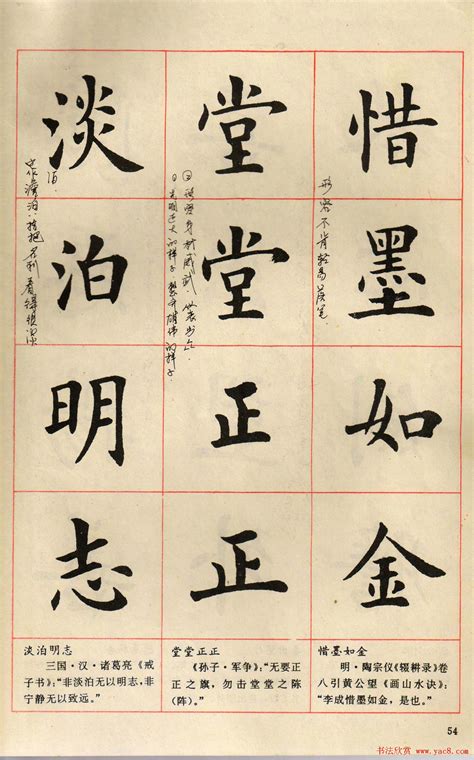 惜墨如金
形容不肯轻易落笔
堂堂正正
淡泊明志
淡泊明志
三国·汉·诸葛亮《戒
子书》：“非淡泊无以明志，非
宁静无以致远。”
堂堂正正
《孙子·军争》：“无要正
正之旗，勿击堂堂之陈
(阵)。”
惜墨如金
明·陶宗仪《辍耕录》卷
八引黄公望《画山水诀》：
“李成惜墨如金，是也。”
54
书法欣赏 www.yac8.com